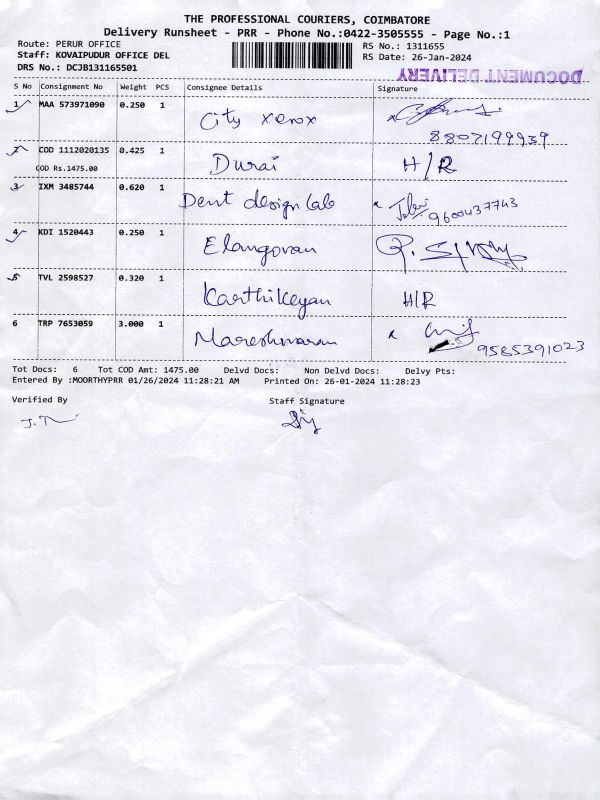 THE PROFESSIONAL COURIERS, COIMBATORE
Delivery Runsheet - PRR - Phone No.:0422-3505555 - Page No.:1
Route: PERUR OFFICE
RS No.: 1311655
Staff: KOVAIPUDUR OFFICE DEL
RS Date: 26-Jan-2024
DRS No.: DCJB131165501
DOCUMENT DELIVERY
S No Consignment No Weight PCS Consignee Details Signature
1 MAA 573971090 0.250 1 City xerox
8807199939
2 COD 1112020135 0.425 1 Durai H/R
COD Rs.1475.00
3 IXM 3485744 0.620 1 Dent design lab 9600437743
4 KDI 1520443 0.250 1 Elangovan
5 TVL 2598527 0.320 1 Karthikeyan H/R
6 TRP 7653059 3.000 1 Mareshwaran 9585391023
Tot Docs: 6 Tot COD Amt: 1475.00 Delvd Docs: Non Delvd Docs: Delvy Pts:
Entered By :MOORTHYPRR 01/26/2024 11:28:21 AM Printed On: 26-01-2024 11:28:23
Verified By Staff Signature